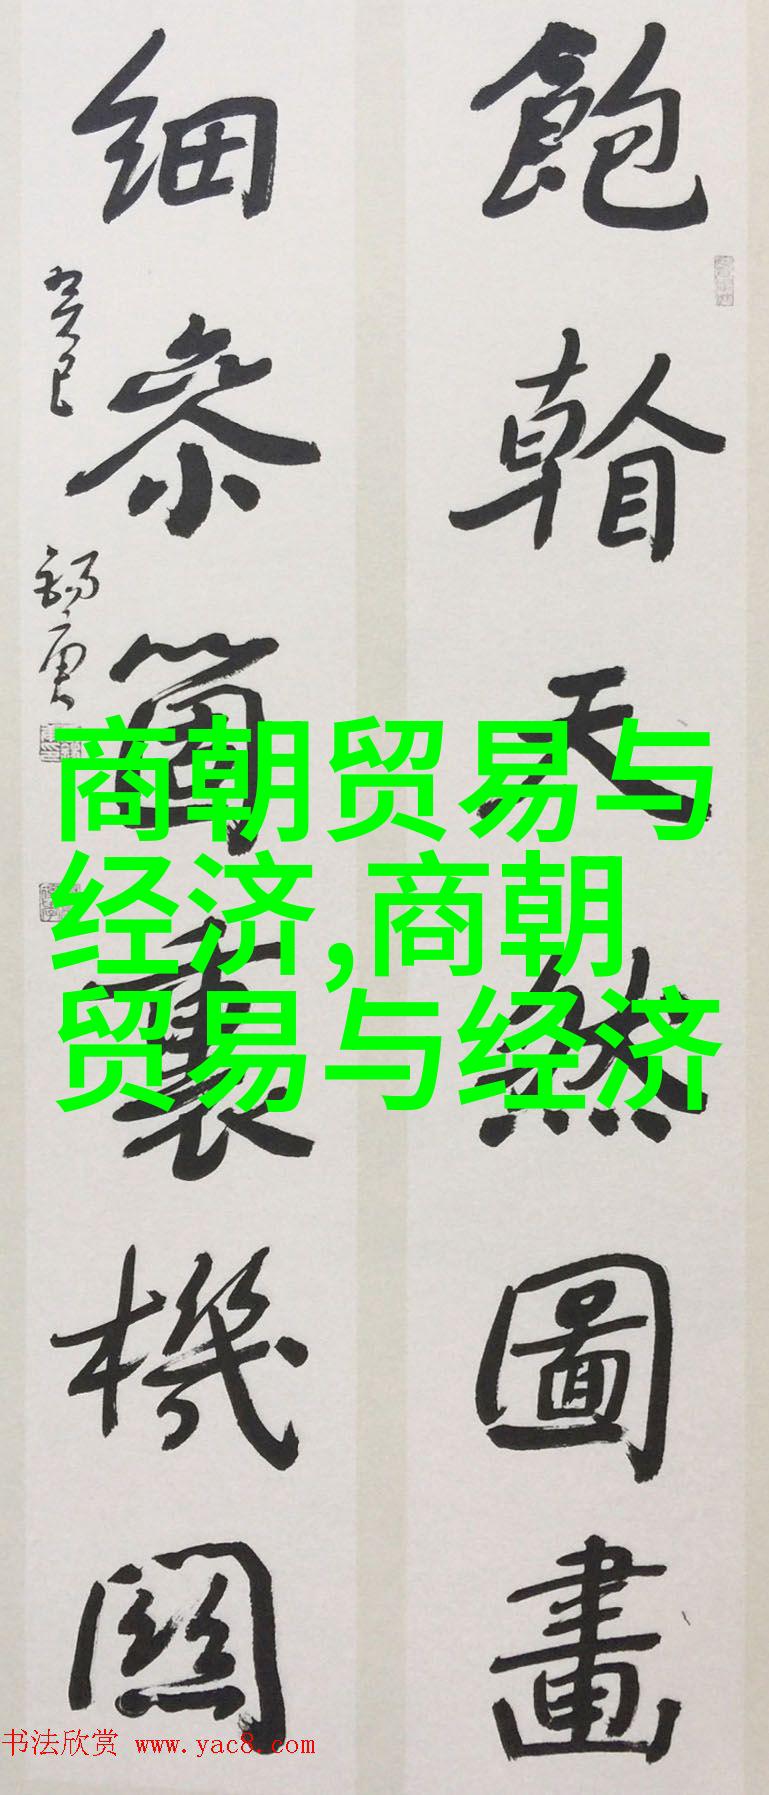 飽看天然圖畫
細參箇裏機關
癸巳
商朝贸易与
经济,商朝
贸易与经济
书法欣赏 www.yac8.com